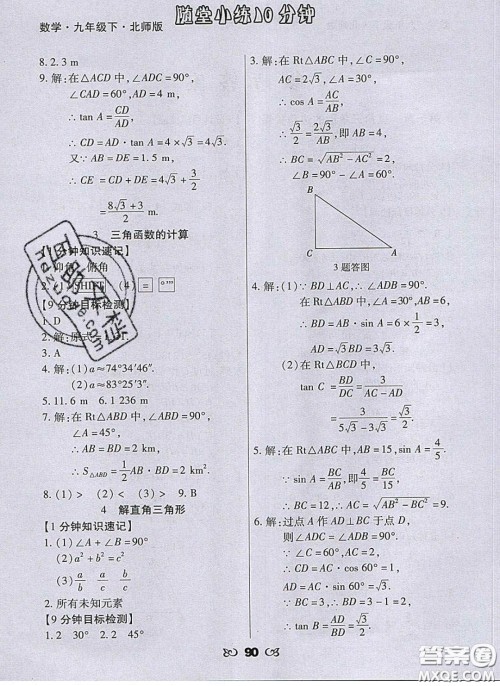 数学·九年级下·北师版
随堂小练10分钟
8. 2.3 m
9. 解:在△ACD 中,∠ADC=90°,
∠CAD=60°,AD=4 m,
∴ tan A=CD/AD,
∴ CD=AD·tan A=4×√3=4√3.
又∵ AB=DE=1.5 m,
∴ CE=CD+DE=4√3+3/2
=(8√3+3)/2 m.
3 三角函数的计算
分钟知识速记】
俯角
2. SHIFT (4) = °′″
【9分钟目标检测】
1. D
2. 解:
3. A
4. 解:(1)a≈74°34′46″.
(2)a≈83°25′55″.
5. 11.6 m 6. 1 236 m
7. 解:在 Rt△ABD 中,∠ABD=90°,
∠A=45°,
∴ BD=AB=2 m,
∴ S△ABD=1/2 AB·BD=2 m².
8. (1)> (2)< (3)> 9. B
4 解直角三角形
【1分钟知识速记】
1. (1)∠A+∠B=90°
(2)a²+b²=c²
(3)a/c b/c a/b
2. 所有未知元素
【9分钟目标检测】
1. 2 30° 2. 45° 4
3. 解:在 Rt△ABC 中,∠C=90°,
AC=2√3,∠A=30°,
∴ cos A=AC/AB,
∴ √3/2=2√3/AB,即 AB=4,
∴ BC=√(AB²-AC²)=2,
∠B=90°-∠A=60°.
B
C
A
3题答图
4. 解:(1)∵ BD⊥AC,∴ ∠ADB=90°.
∵ AB=6,∠A=30°,
∴ BD=AB·sin A=6×1/2=3,
∴ AD=√3BD=3√3.
(2)在 Rt△BDC 中,
tan C=BD/DC=3/(AC-AD)
=3/(5√3-3√3)=√3/2.
5. 解:在 Rt△ABC 中,AB=15,sin A=4/5,
∵ sin A=BC/AB,∴ 4/5=BC/15,
∴ BC=12,∴ AC=√(AB²-BC²)=9.
6. 解:过点 A 作 AD⊥BC 于点 D,
则∠ADC=∠ADB=90°.
∵ ∠C=60°,AC=2,
∴ CD=AC·cos 60°=1,
AD=AC·sin 60°=√3.
∵ BC=4,∴ BD=BC-CD=3,
90
答案圈
MXQE.COM